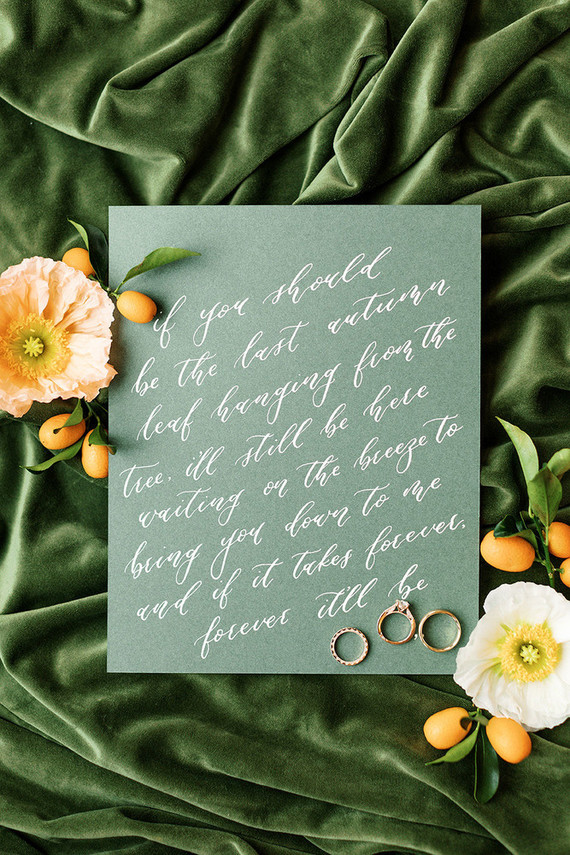 if you should
be the last autumn
leaf hanging from the
tree, i'll still be here
waiting on the breeze to
bring you down to me
and if it takes forever,
forever it'll be